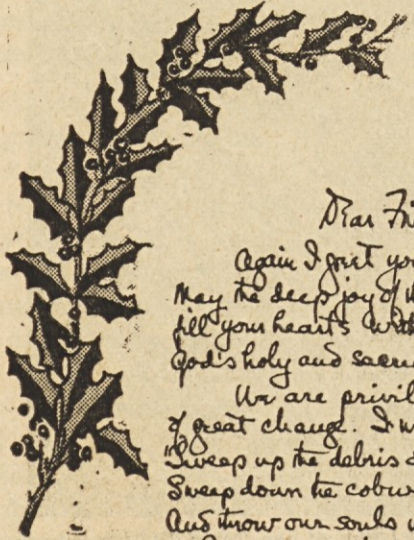 Dear Fri
Again I greet you
May the deep joy of th
fill your hearts with
God's holy and sacre
We are privil
of great change. I w
"Sweep up the debris
Sweep down the cobw
And throw our souls